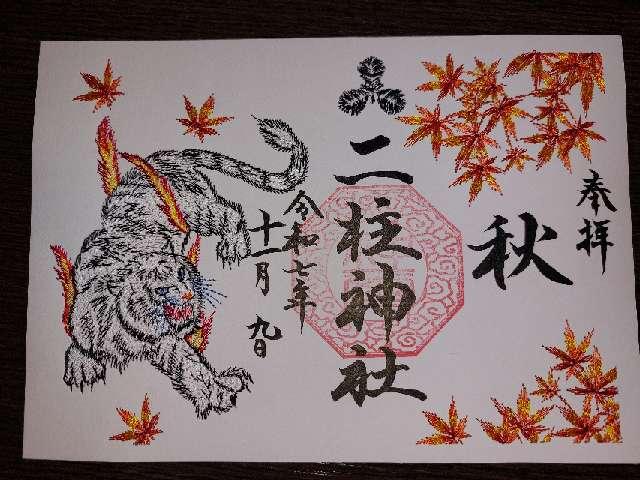 奉拝
秋
二柱神社
令和七年
十一月九日